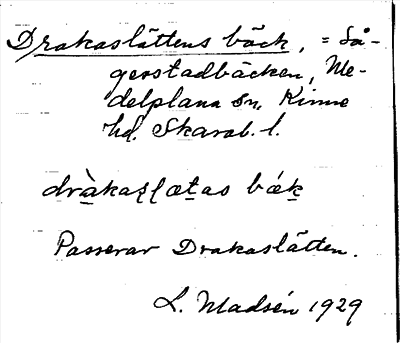 Drakaslättens bäck, = Så-
gerstadbäcken, Me-
delplana sn, Kinne
hd. Skarab. l.
dràkaʂɭætas bǽk
Passerar Drakaslätten.
L. Madsén 1929